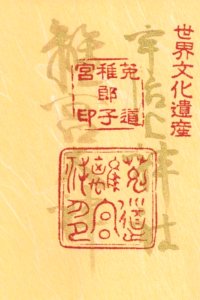 世界文化遺産
宇治上神社
菟道
稚郎子
宮印
菟道
離宮